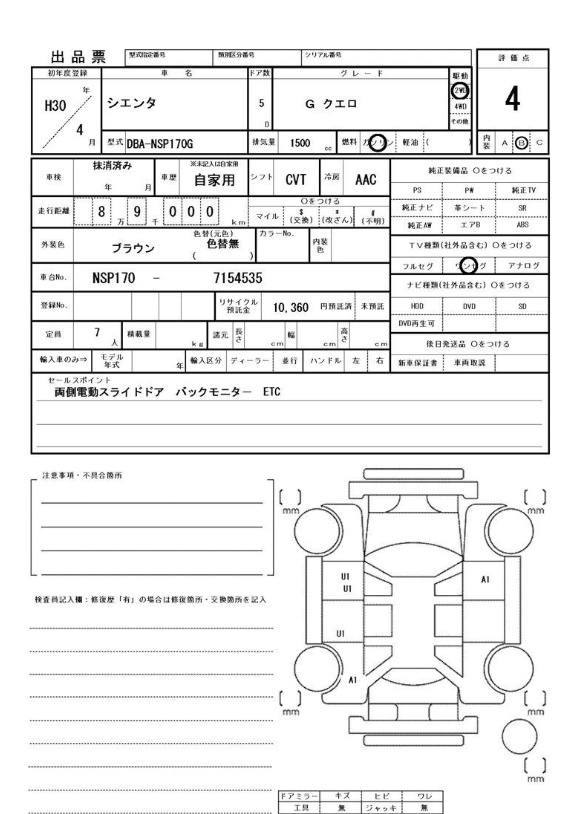 出品票 型式指定番号 類別区分番号 シリアル番号 評価点
初年度登録 車名 ドア数 グレード 駆動
H30 年 シエンタ 5 G クエロ 2WD 4
4WD
4 月 D その他
型式 DBA-NSP170G 排気量 1500 cc 燃料 ガソリン 軽油 ( ) 内装 A B C
車検 抹消済み 年 月 車歴 ※未記入は自家用 自家用 シフト CVT 冷房 AAC 純正装備品 〇をつける
PS PW 純正TV
走行距離 8 万 9 千 0 0 0 km 〇をつける マイル $ (交換) * (改ざん) # (不明) 純正ナビ 革シート SR
純正AW エアB ABS
外装色 ブラウン 色替(元色) 色替無 ( ) カラーNo. 内装色 TV種類(社外品含む)〇をつける
フルセグ ワンセグ アナログ
車台No. NSP170 - 7154535 ナビ種類(社外品含む)〇をつける
登録No. リサイクル預託金 10,360 円預託済 未預託 HDD DVD SD
DVD再生可
定員 7 人 積載量 kg 諸元 長さ cm 幅 cm 高さ cm 後日発送品 〇をつける
輸入車のみ⇒ モデル年式 年 輸入区分 ディーラー 並行 ハンドル 左 右 新車保証書 車両取説
セールスポイント
両側電動スライドドア バックモニター ETC
注意事項・不具合箇所
[ ] mm [ ] mm
U1 A1
U1
検査員記入欄：修復歴「有」の場合は修復箇所・交換箇所を記入
U1
A1
[ ] mm [ ] mm
[ ] mm
ドアミラー キズ ヒビ ワレ
工具 無 ジャッキ 無